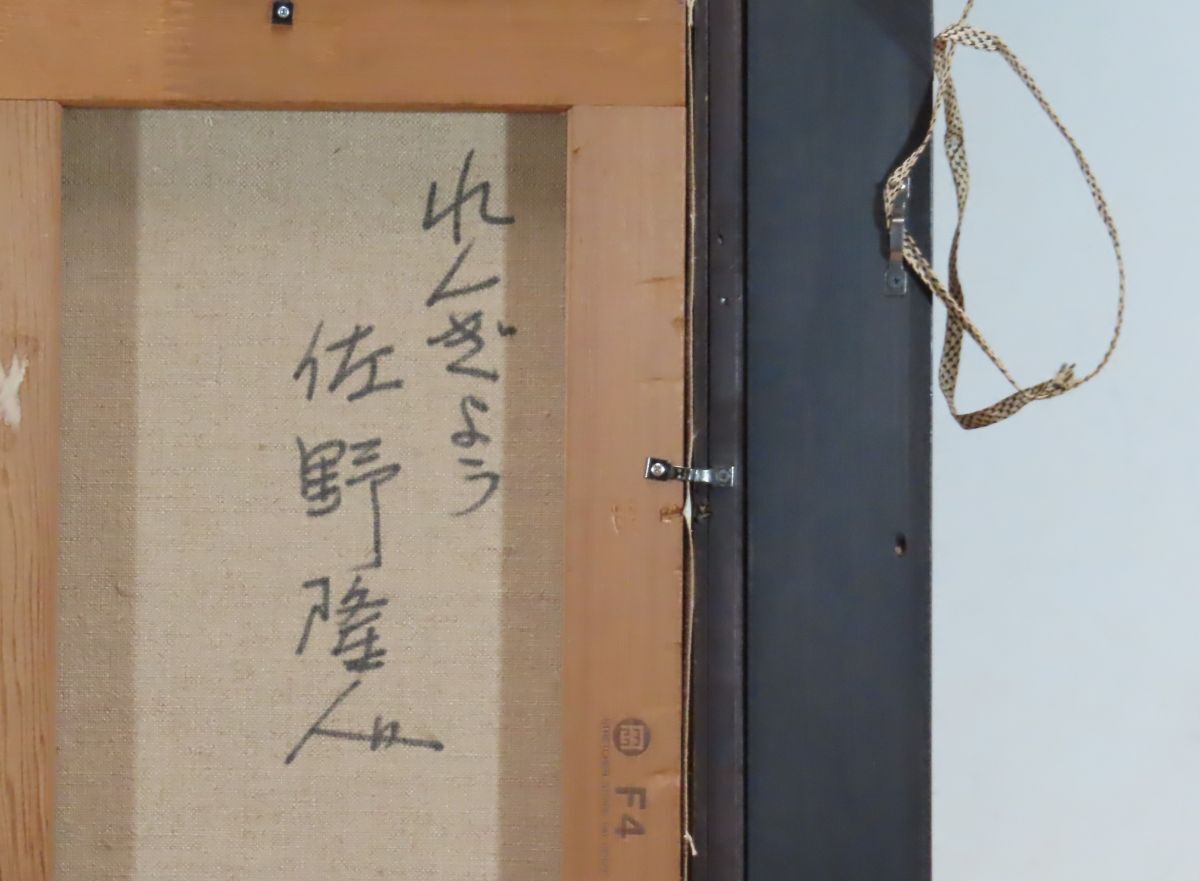 れんぎょう
佐野隆
F4